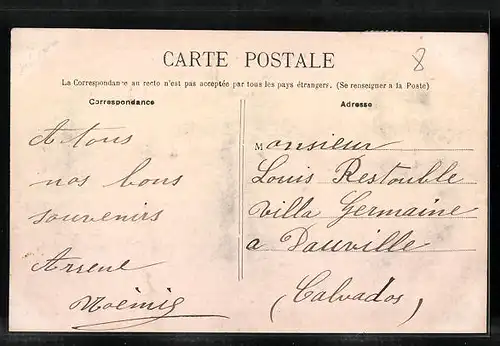 CARTE POSTALE
8
La Correspondance au recto n'est pas acceptée par tous les pays étrangers. (Se renseigner à la Poste)
Correspondance
A tous
nos bons
souvenirs
Arsene
Noémie
Adresse
Monsieur
Louis Restouble
Villa Germaine
a Dauville
(Calvados)